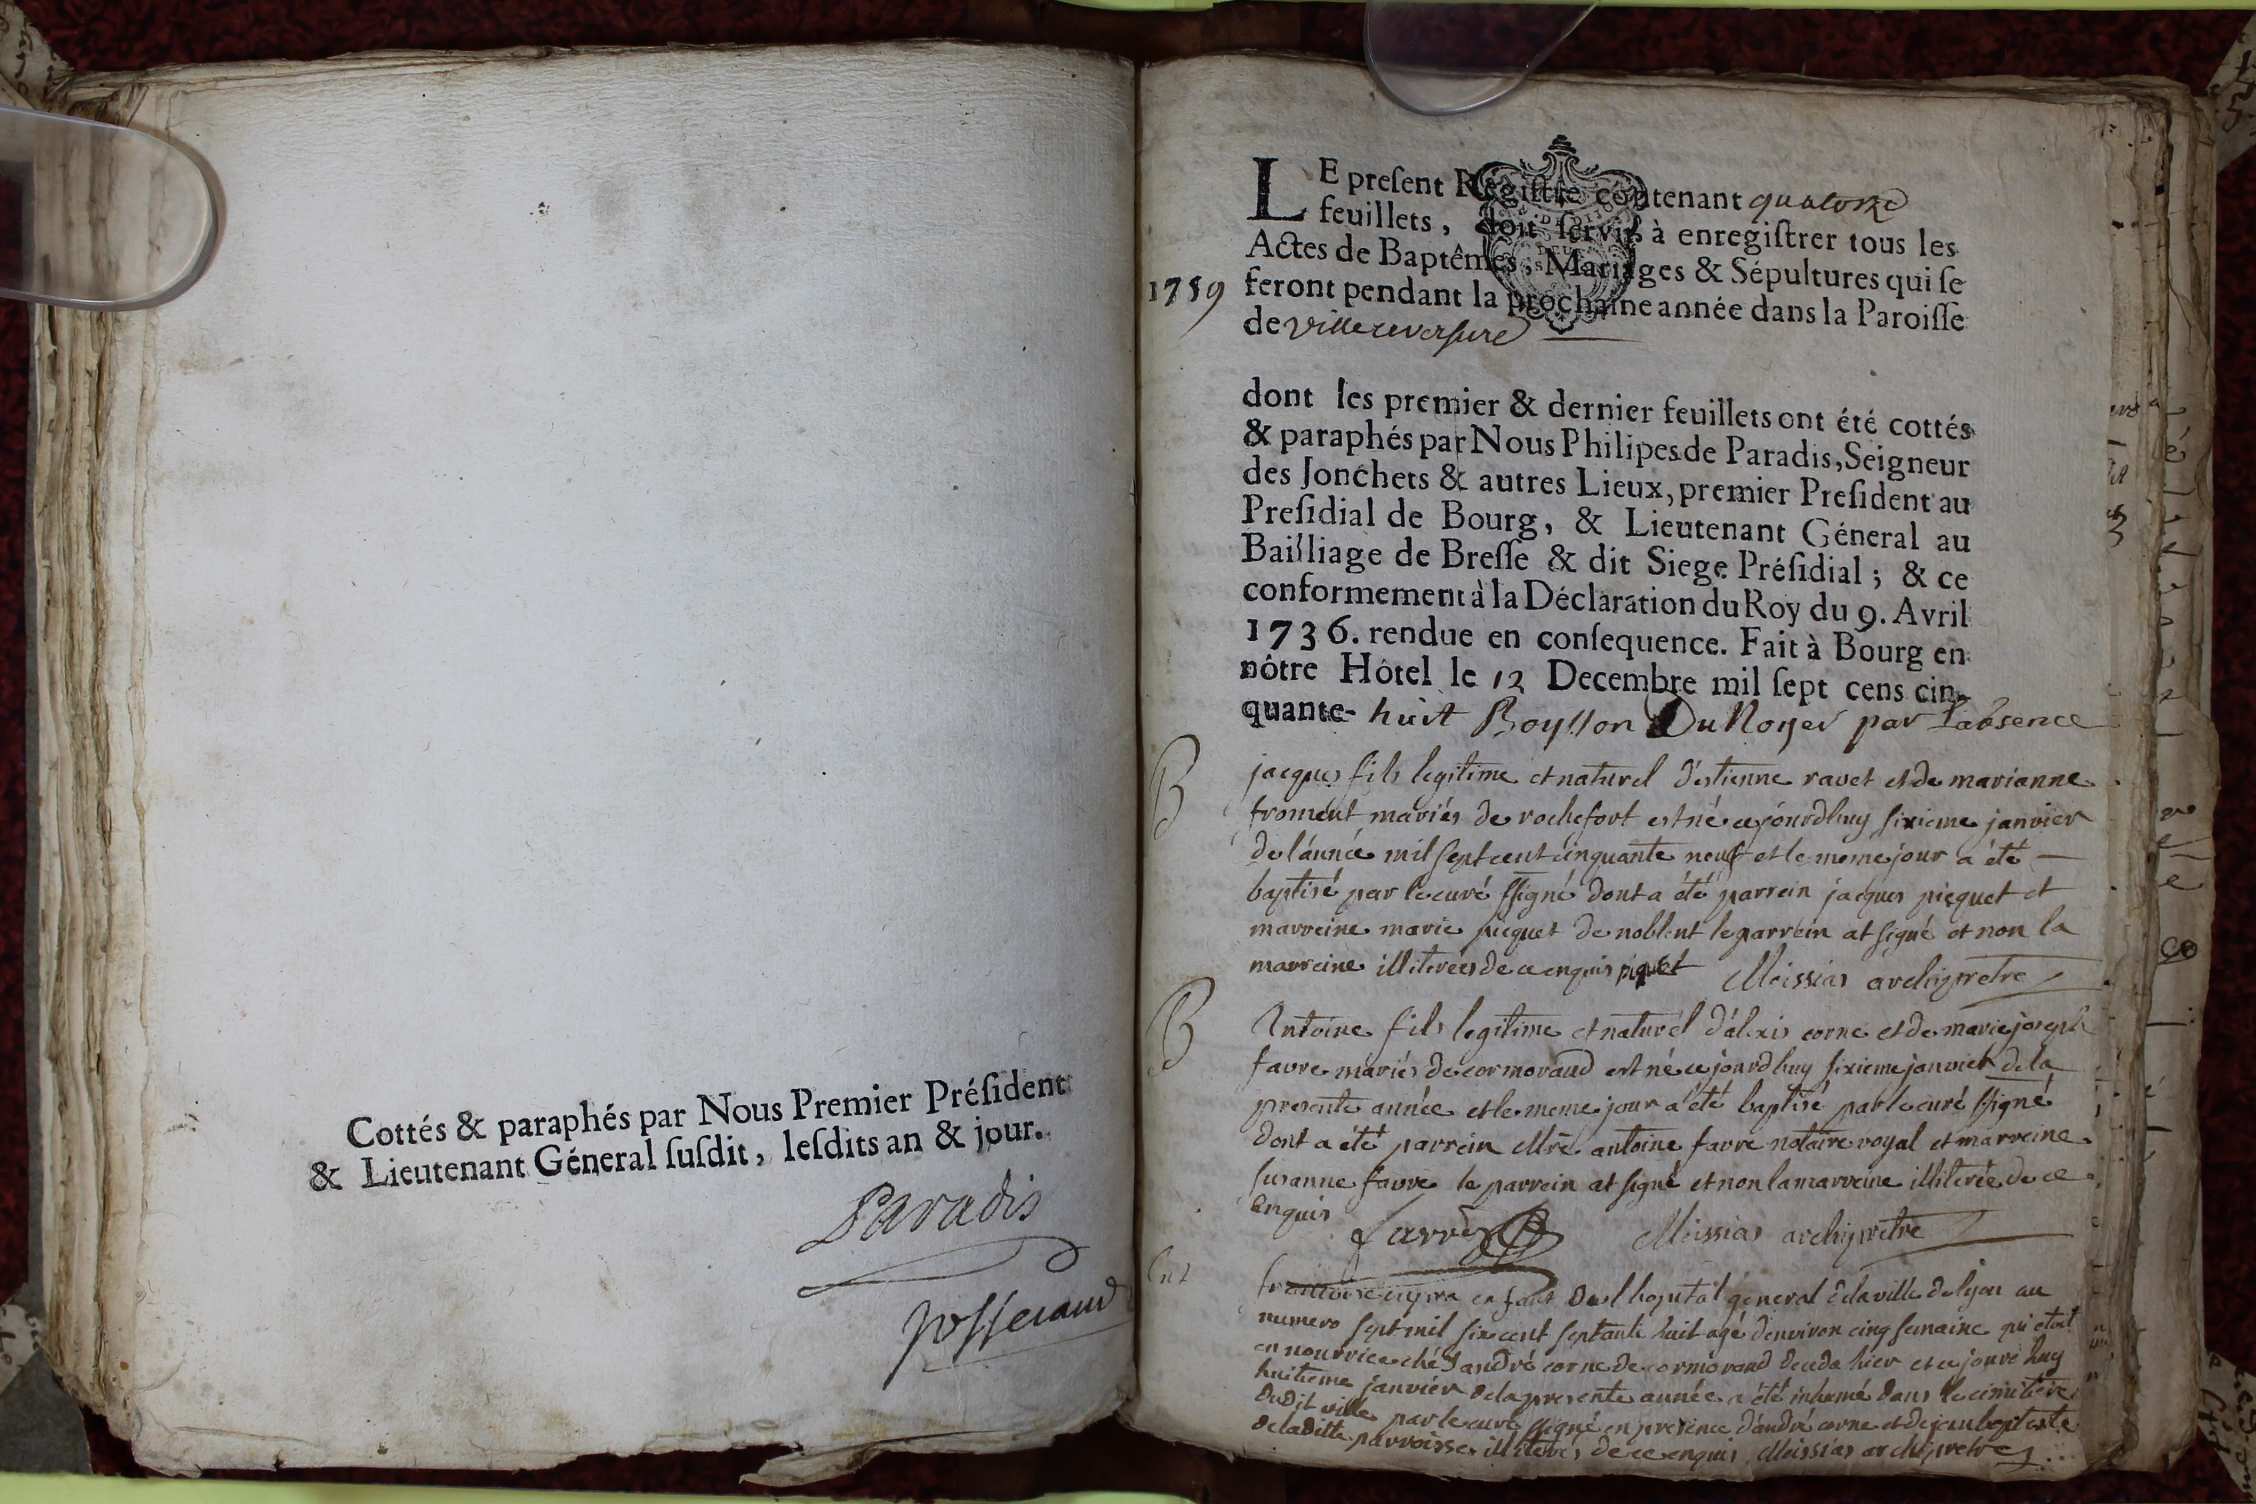 Cottés & paraphés par Nous Premier Préſident
& Lieutenant Géneral ſuſdit, leſdits an & jour.
Paradis
Josserand
1759
LE preſent Regiſtre contenant quatorze
feuillets, doit ſervir à enregiſtrer tous les
Actes de Baptêmes, Mariages & Sépultures qui ſe
feront pendant la prochaine année dans la Paroiſſe
de Villereversure
dont les premier & dernier feuillets ont été cottés
& paraphés par Nous Philipes de Paradis, Seigneur
des Jonchets & autres Lieux, premier Preſident au
Preſidial de Bourg, & Lieutenant Géneral au
Bailliage de Breſſe & dit Siege Préſidial ; & ce
conformement à la Déclaration du Roy du 9. Avril
1736. rendue en conſequence. Fait à Bourg en
nôtre Hôtel le 12 Decembre mil ſept cens cin-
quante- huit Boysson Du Noyer par l'absence
B
jacques fils legitime et naturel d'estienne ravet et de marianne
froment mariés de rochefort est né cejourdhuy sixieme janvier
de l'année mil sept cent cinquante neuf et le meme jour a été
baptisé par le curé ssigné dont a été parrein jacques picquet et
marreine marie picquet de noblent le parrein at signé et non la
marreine illiterées de ce enquis piquet Meissias archipretre
B
Antoine fils legitime et naturel d'alexis corne et de marie joseph
favre mariés de cormoraud est né cejourdhuy sixieme janvier de la
presente année et le meme jour a été baptisé par le curé ssigné
dont a été parrein Mre antoine favre notaire royal et marreine
susanne favre le parrein at signé et non la marreine illiterée de ce
enquis favre Meissias archipretre
Ent
enfant de l'hopital general de la ville de lyon au
numero sept mil six cent septante huit agé d'environ cinq semaine qui etoit
en nourrice ché andré corne de cormoraud hier et ce jourdhuy
huitieme janvier de la presente année a été inhumé dans le cimitiere
dudit ville par le curé ssigné en presence d'andré corne et de jean baptiste
de la ditte parroisse illiterés de ce enquis Meissias archipretre